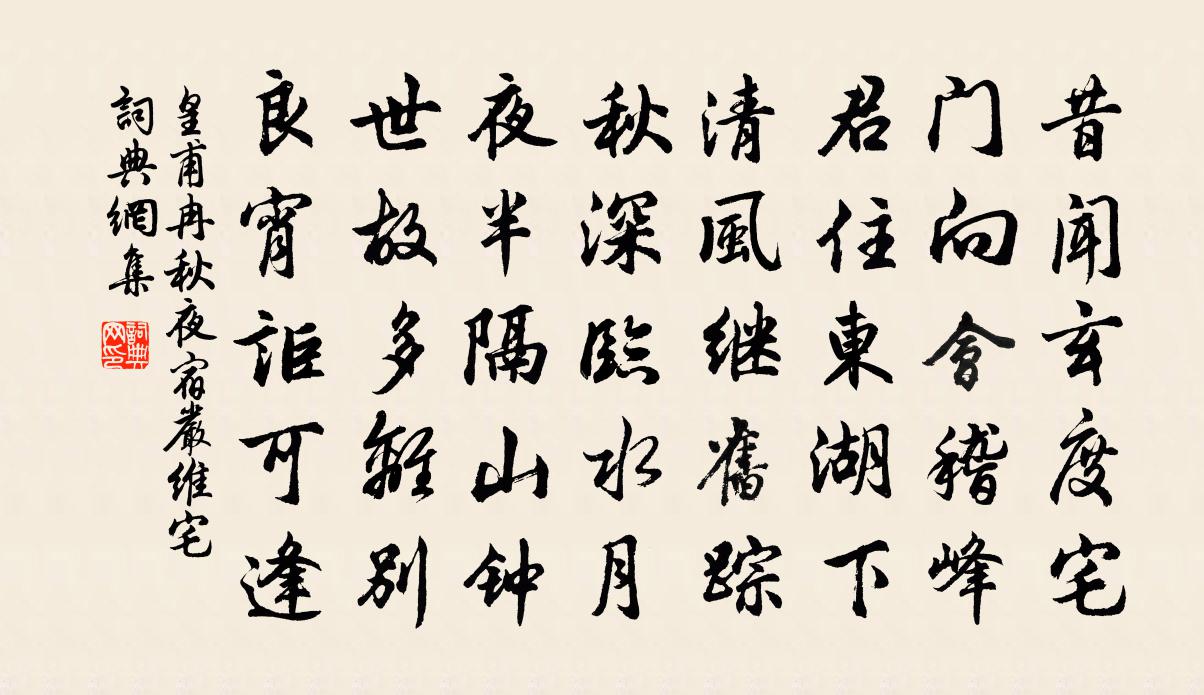 昔聞玄度宅
门向會稽峰
君住東湖下
清風继舊踪
秋深臨水月
夜半隔山钟
世故多離別
良宵詎可逢
皇甫冉秋夜宿嚴維宅
詞典網集
詞典网印